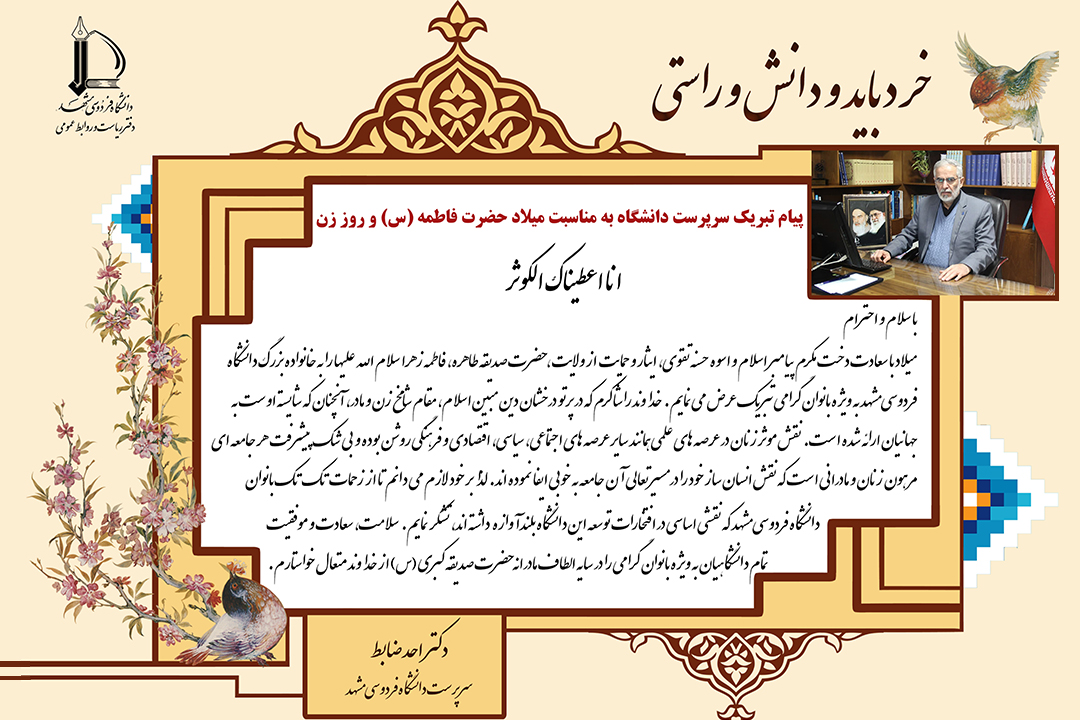 خرد باید و دانش و راستی
دانشگاه فردوسی مشهد
دفتر ریاست و روابط عمومی
پیام تبریک سرپرست دانشگاه به مناسبت میلاد حضرت فاطمه (س) و روز زن
انا اعطیناک الکوثر
با سلام و احترام
میلاد با سعادت دخت مکرم پیامبر اسلام و اسوه حسنه تقوی، ایثار و حمایت از ولایت، حضرت صدیقه طاهره، فاطمه زهرا سلام الله علیها را به خانواده بزرگ دانشگاه
فردوسی مشهد به ویژه بانوان گرامی تبریک عرض می نمایم. خداوند را شاکرم که در پرتو درخشان دین مبین اسلام، مقام شامخ زن و مادر، آنچنان که شایسته اوست به
جهانیان ارائه شده است. نقش موثر زنان در عرصه های علمی همانند سایر عرصه های اجتماعی، سیاسی، اقتصادی و فرهنگی روشن بوده و بی شک پیشرفت هر جامعه ای
مرهون زنان و مادرانی است که نقش انسان ساز خود را در مسیر تعالی آن جامعه به خوبی ایفا نموده اند. لذا بر خود لازم می دانم تا از زحمات تک تک بانوان
دانشگاه فردوسی مشهد که نقشی اساسی در افتخارات توسعه این دانشگاه بلند آوازه داشته اند، تشکر نمایم. سلامت، سعادت و موفقیت
تمام دانشگاهیان به ویژه بانوان گرامی را در سایه الطاف مادرانه حضرت صدیقه کبری (س) از خداوند متعال خواستارم.
دکتر احد ضابط
سرپرست دانشگاه فردوسی مشهد